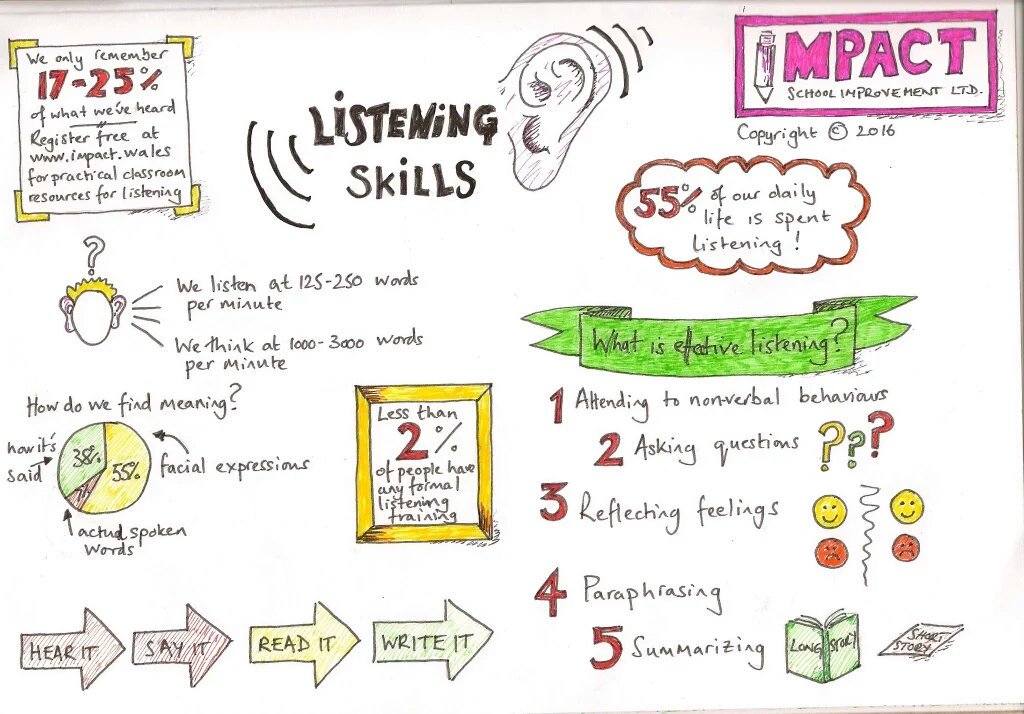 We only remember
17-25%
of what we've heard
Register free at
www.impact.wales
for practical classroom
resources for listening
LISTENING
SKILLS
IMPACT
SCHOOL IMPROVEMENT LTD.
Copyright © 2016
55% of our daily
life is spent
listening!
?
We listen at 125-250 words
per minute
We think at 1000-3000 words
per minute
How do we find meaning?
how it's
said
38%
55%
7%
facial expressions
actual spoken
words
Less than
2%
of people have
any formal
listening
training
What is effective listening?
1 Attending to non-verbal behaviours
2 Asking questions ???
3 Reflecting feelings
4 Paraphrasing
5 Summarizing
LONG STORY
SHORT
STORY
HEAR IT
SAY IT
READ IT
WRITE IT